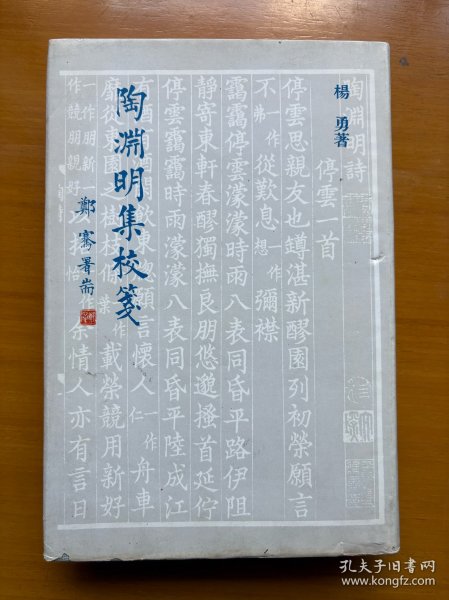 楊勇著
陶淵明集校箋
鄭騫署耑
陶淵明詩
停雲一首
停雲思親友也罇湛新醪園列初榮願言
不一作弗從歎息一作想彌襟
靄靄停雲濛濛時雨八表同昏平路伊阻
靜寄東軒春醪獨撫良朋悠邈搔首延佇
停雲靄靄時雨濛濛八表同昏平陸成江
願言懷人一作仁舟車
靡從東園之樹枝條一作葉載榮競用新好
余情人亦有言日
孔夫子旧书网
www.kongfz.com